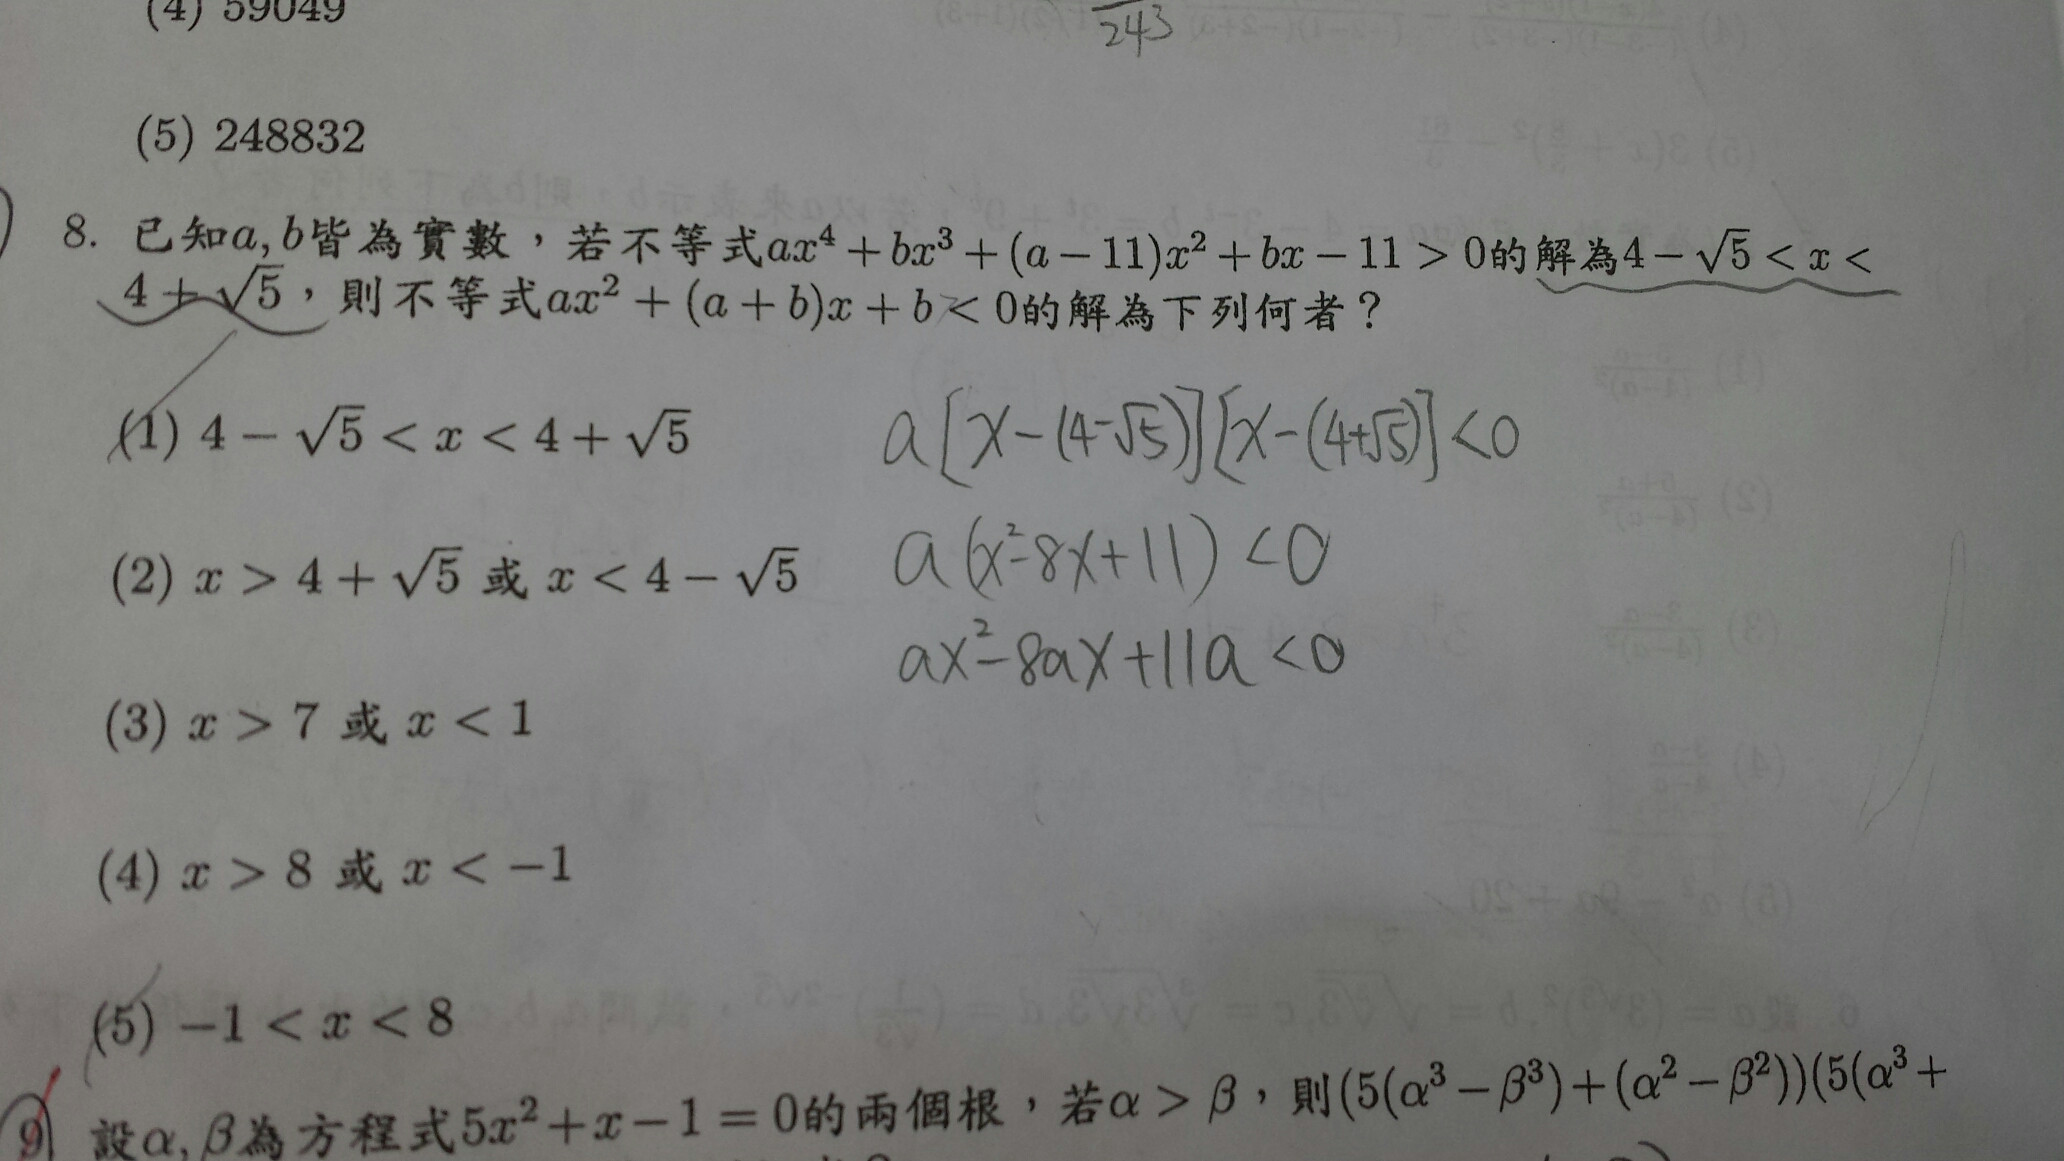 (4) 59049
243
(5) 248832
8. 已知a, b皆為實數，若不等式ax⁴ + bx³ + (a − 11)x² + bx − 11 > 0的解為4 − √5 < x <
4 + √5，則不等式ax² + (a + b)x + b < 0的解為下列何者？
(1) 4 − √5 < x < 4 + √5
a[x−(4−√5)][x−(4+√5)]<0
(2) x > 4 + √5 或 x < 4 − √5
a(x²−8x+11)<0
ax²−8ax+11a<0
(3) x > 7 或 x < 1
(4) x > 8 或 x < −1
(5) −1 < x < 8
9 設α, β為方程式5x² + x − 1 = 0的兩個根，若α > β，則(5(α³ − β³) + (α² − β²))(5(α³ +